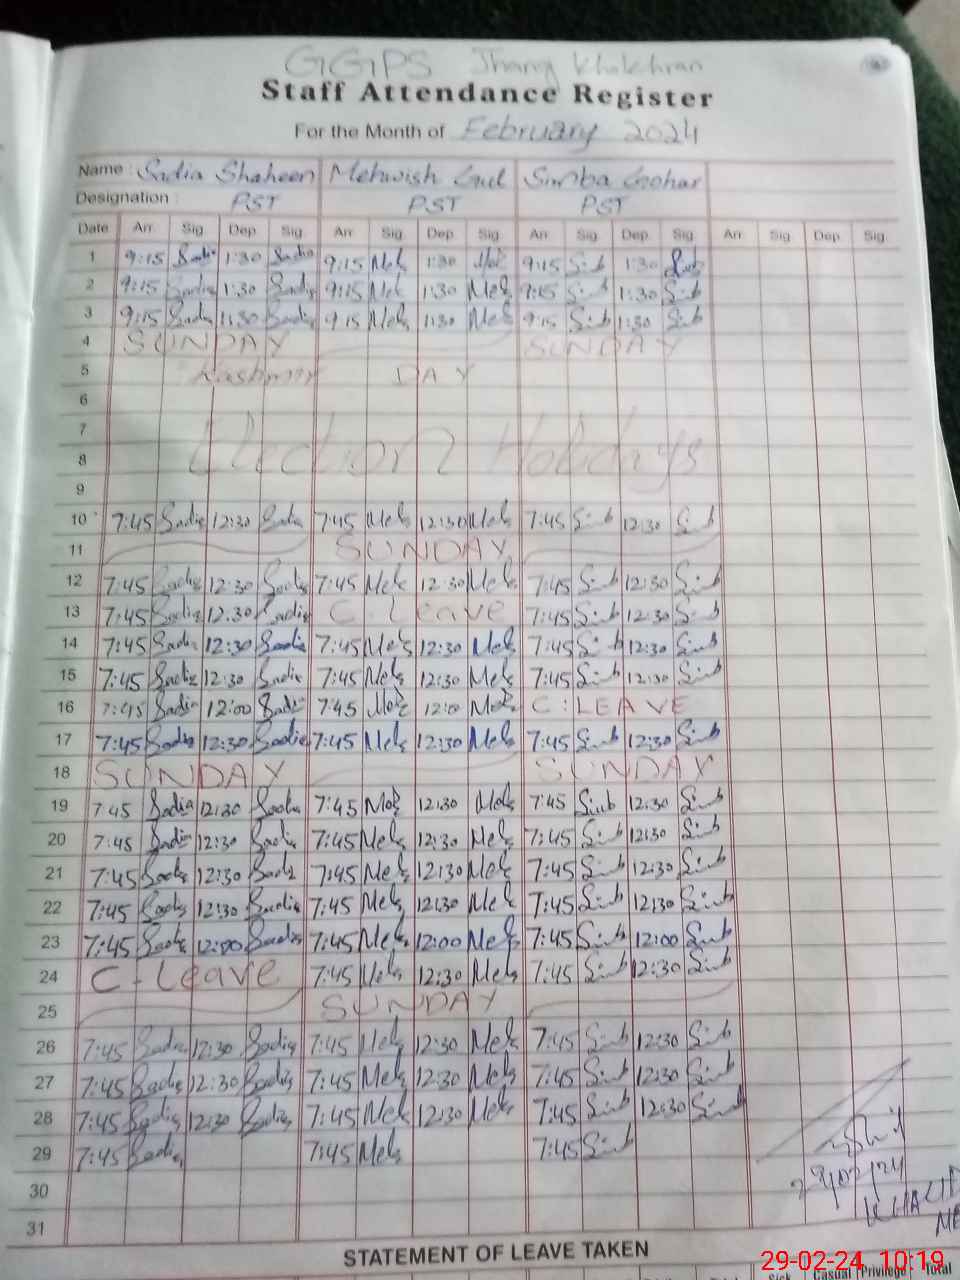 GGPS Jhang Khokhran
Staff Attendance Register
For the Month of February 2024
Name : Sadia Shaheen Mehwish Gul Simba Gohar
Designation : PST PST PST
Date Arr. Sig. Dep. Sig. Arr. Sig. Dep. Sig. Arr. Sig. Dep. Sig. Arr. Sig. Dep. Sig.
1 9:15 Sadia 1:30 Sadia 9:15 Meh 1:30 Meh 9:15 Sib 1:30 Sib
2 9:15 Sadia 1:30 Sadia 9:15 Meh 1:30 Meh 9:15 Sib 1:30 Sib
3 9:15 Sadia 1:30 Sadia 9:15 Meh 1:30 Meh 9:15 Sib 1:30 Sib
4 SUNDAY SUNDAY
5 Kashmir DAY
6
7 Election Holidays
8
9
10 7:45 Sadia 12:30 Sadia 7:45 Meh 12:30 Meh 7:45 Sib 12:30 Sib
11 SUNDAY
12 7:45 Sadia 12:30 Sadia 7:45 Meh 12:30 Meh 7:45 Sib 12:30 Sib
13 7:45 Sadia 12:30 Sadia C. Leave 7:45 Sib 12:30 Sib
14 7:45 Sadia 12:30 Sadia 7:45 Meh 12:30 Meh 7:45 Sib 12:30 Sib
15 7:45 Sadia 12:30 Sadia 7:45 Meh 12:30 Meh 7:45 Sib 12:30 Sib
16 7:45 Sadia 12:00 Sadia 7:45 Meh 12:00 Meh C. LEAVE
17 7:45 Sadia 12:30 Sadia 7:45 Meh 12:30 Meh 7:45 Sib 12:30 Sib
18 SUNDAY SUNDAY
19 7:45 Sadia 12:30 Sadia 7:45 Meh 12:30 Meh 7:45 Sib 12:30 Sib
20 7:45 Sadia 12:30 Sadia 7:45 Meh 12:30 Meh 7:45 Sib 12:30 Sib
21 7:45 Sadia 12:30 Sadia 7:45 Meh 12:30 Meh 7:45 Sib 12:30 Sib
22 7:45 Sadia 12:30 Sadia 7:45 Meh 12:30 Meh 7:45 Sib 12:30 Sib
23 7:45 Sadia 12:00 Sadia 7:45 Meh 12:00 Meh 7:45 Sib 12:00 Sib
24 C - Leave 7:45 Meh 12:30 Meh 7:45 Sib 12:30 Sib
25 SUNDAY
26 7:45 Sadia 12:30 Sadia 7:45 Meh 12:30 Meh 7:45 Sib 12:30 Sib
27 7:45 Sadia 12:30 Sadia 7:45 Meh 12:30 Meh 7:45 Sib 12:30 Sib
28 7:45 Sadia 12:30 Sadia 7:45 Meh 12:30 Meh 7:45 Sib 12:30 Sib
29 7:45 Sadia 7:45 Meh 7:45 Sib
29/02/24
30
KHALID
31
STATEMENT OF LEAVE TAKEN
29-02-24 10:19
Sick Casual Privilege Total